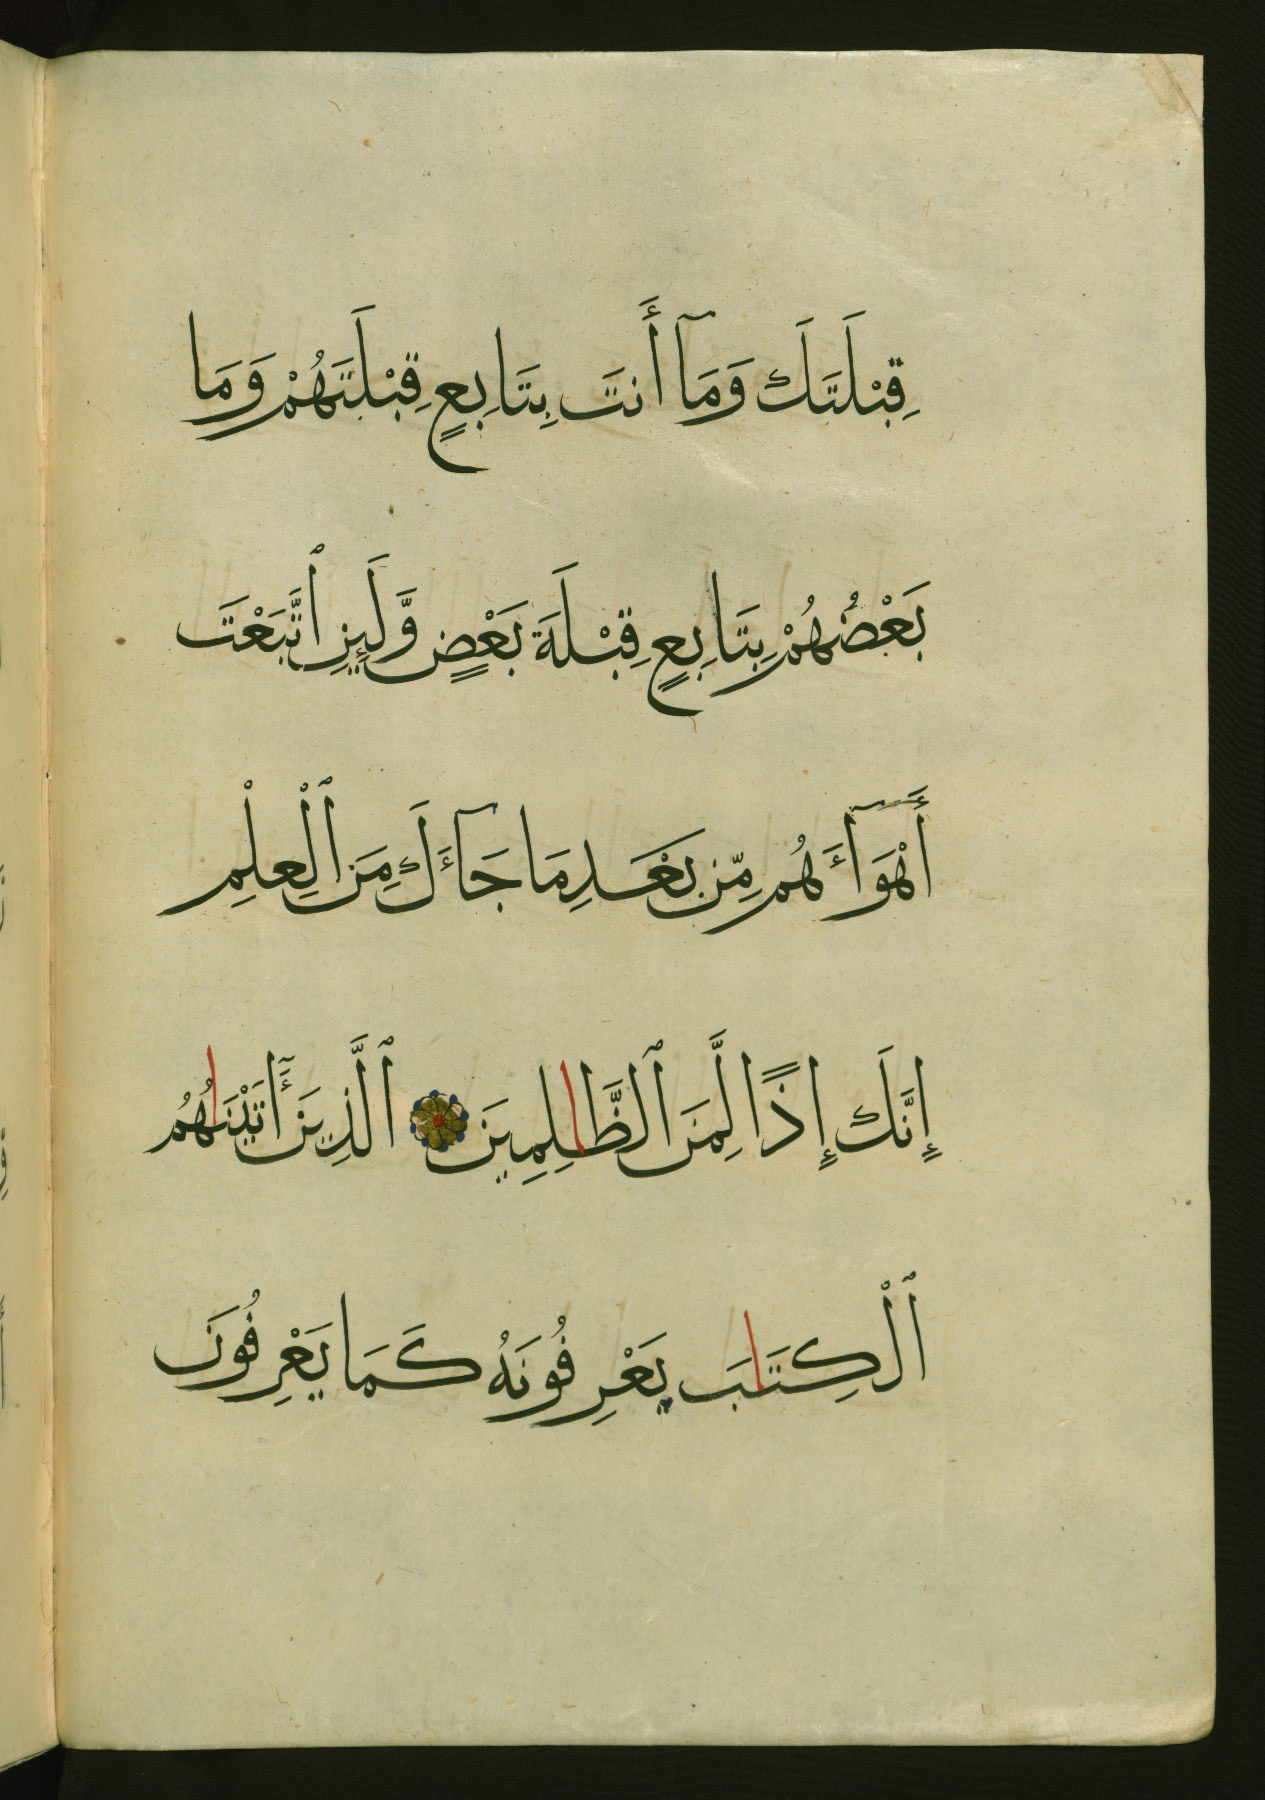 قِبْلَتَكَ وَمَآ أَنتَ بِتَابِعٍ قِبْلَتَهُمْ وَمَا
بَعْضُهُمْ بِتَابِعٍ قِبْلَةَ بَعْضٍ وَّلَئِنِ ٱتَّبَعْتَ
أَهْوَآءَهُم مِّن بَعْدِ مَا جَآءَكَ مِنَ ٱلْعِلْمِ
إِنَّكَ إِذًا لَّمِنَ ٱلظَّالِمِينَ ٱلَّذِينَ ءَاتَيْنَاهُمُ
ٱلْكِتَابَ يَعْرِفُونَهُ كَمَا يَعْرِفُونَ